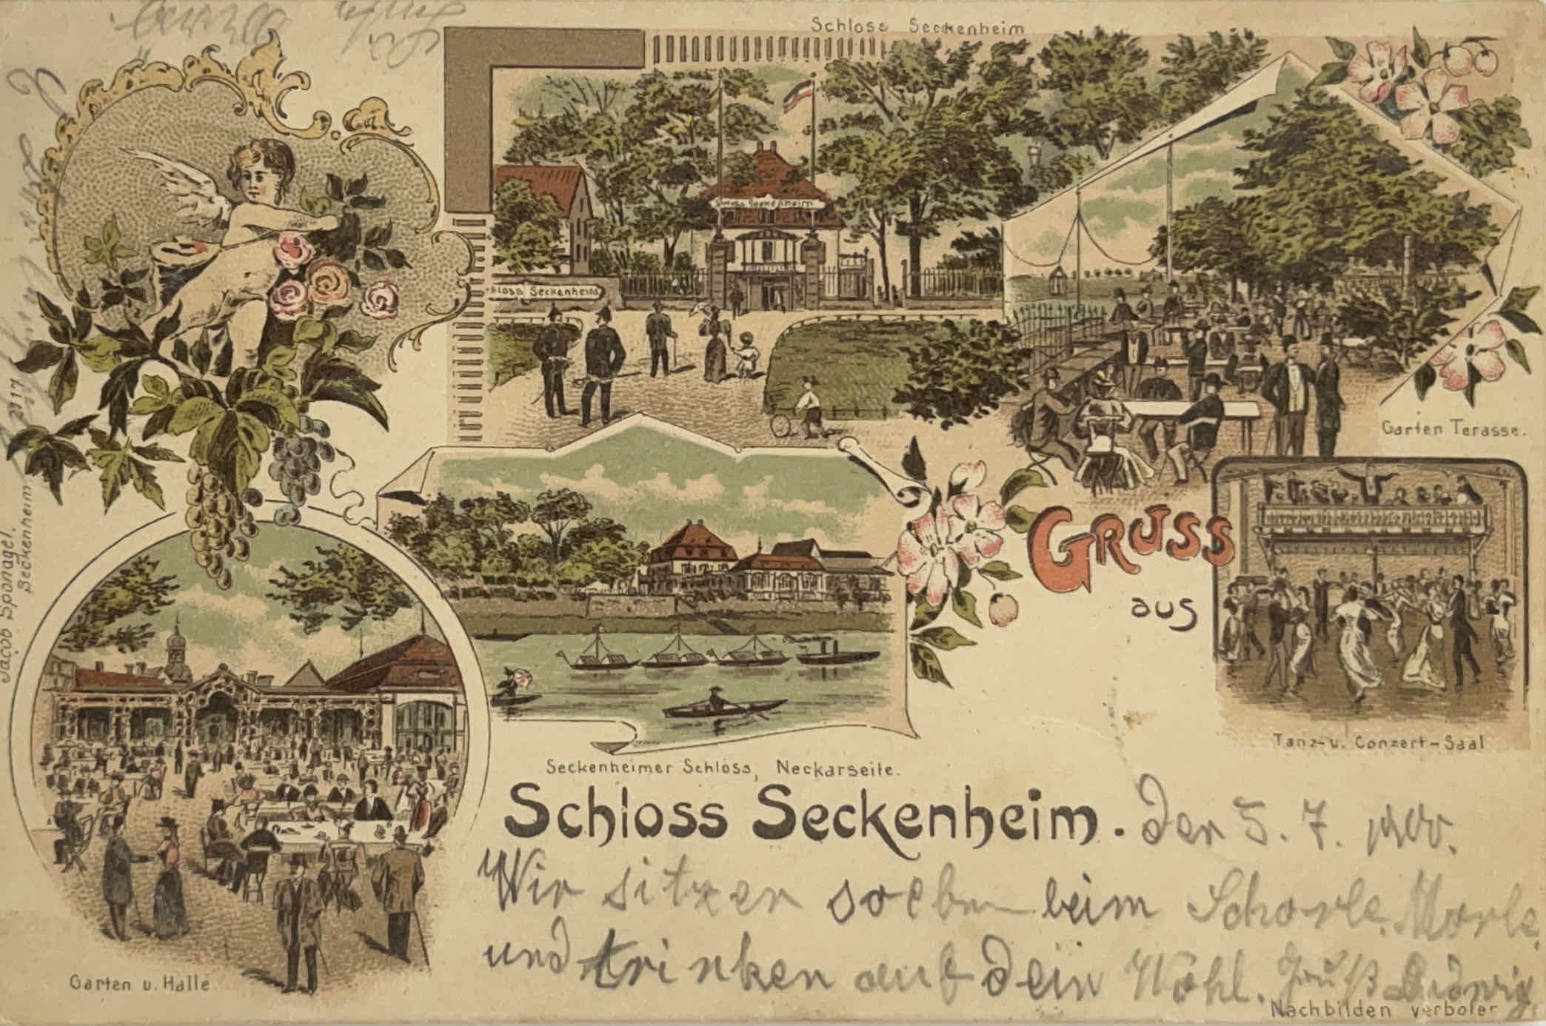 Schloss Seckenheim
Schloss Seckenheim
Schloss Seckenheim
Garten Terasse.
Gruss
aus
Tanz- u. Conzert-Saal
Seckenheimer Schloss, Neckarseite.
Schloss Seckenheim. Den 5. 7. 1900.
Wir sitzen soeben beim Schorle Morle
und trinken auf dein Wohl. Gruß Ludwig
Garten u. Halle
Nachbilden verboten
Jacob Sponagel,
Seckenheim
2117